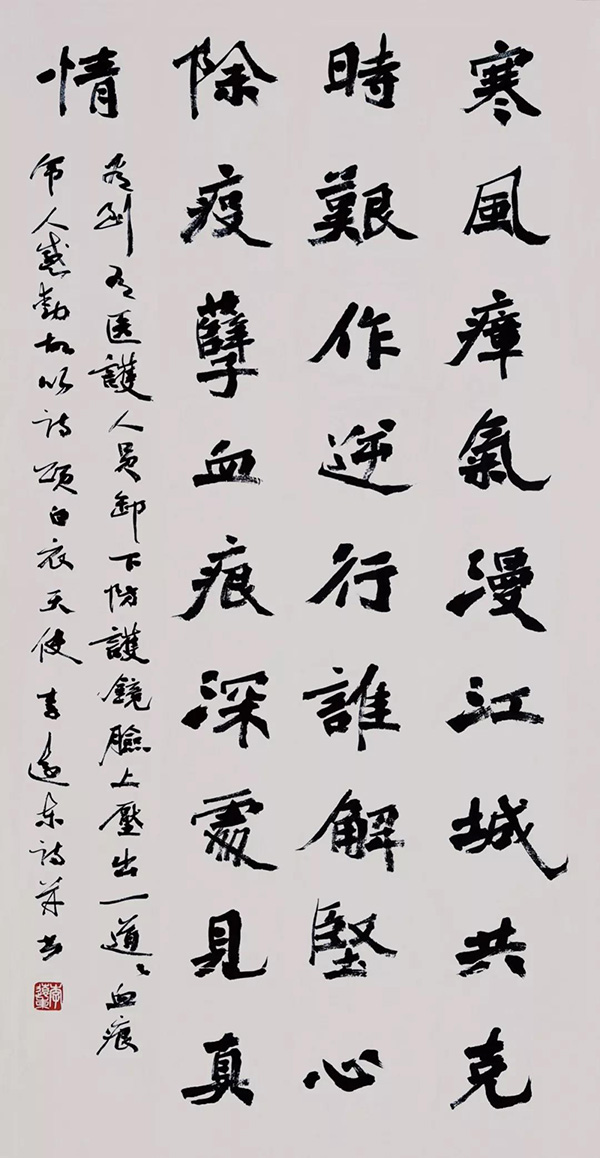 寒風瘴氣漫江城共克
時艱作逆行誰解堅心
除疫孽血痕深處見真
情
看到有医護人員卸下防護鏡臉上壓出一道〻血痕
令人感動故以詩頌白衣天使 李遠東詩并書